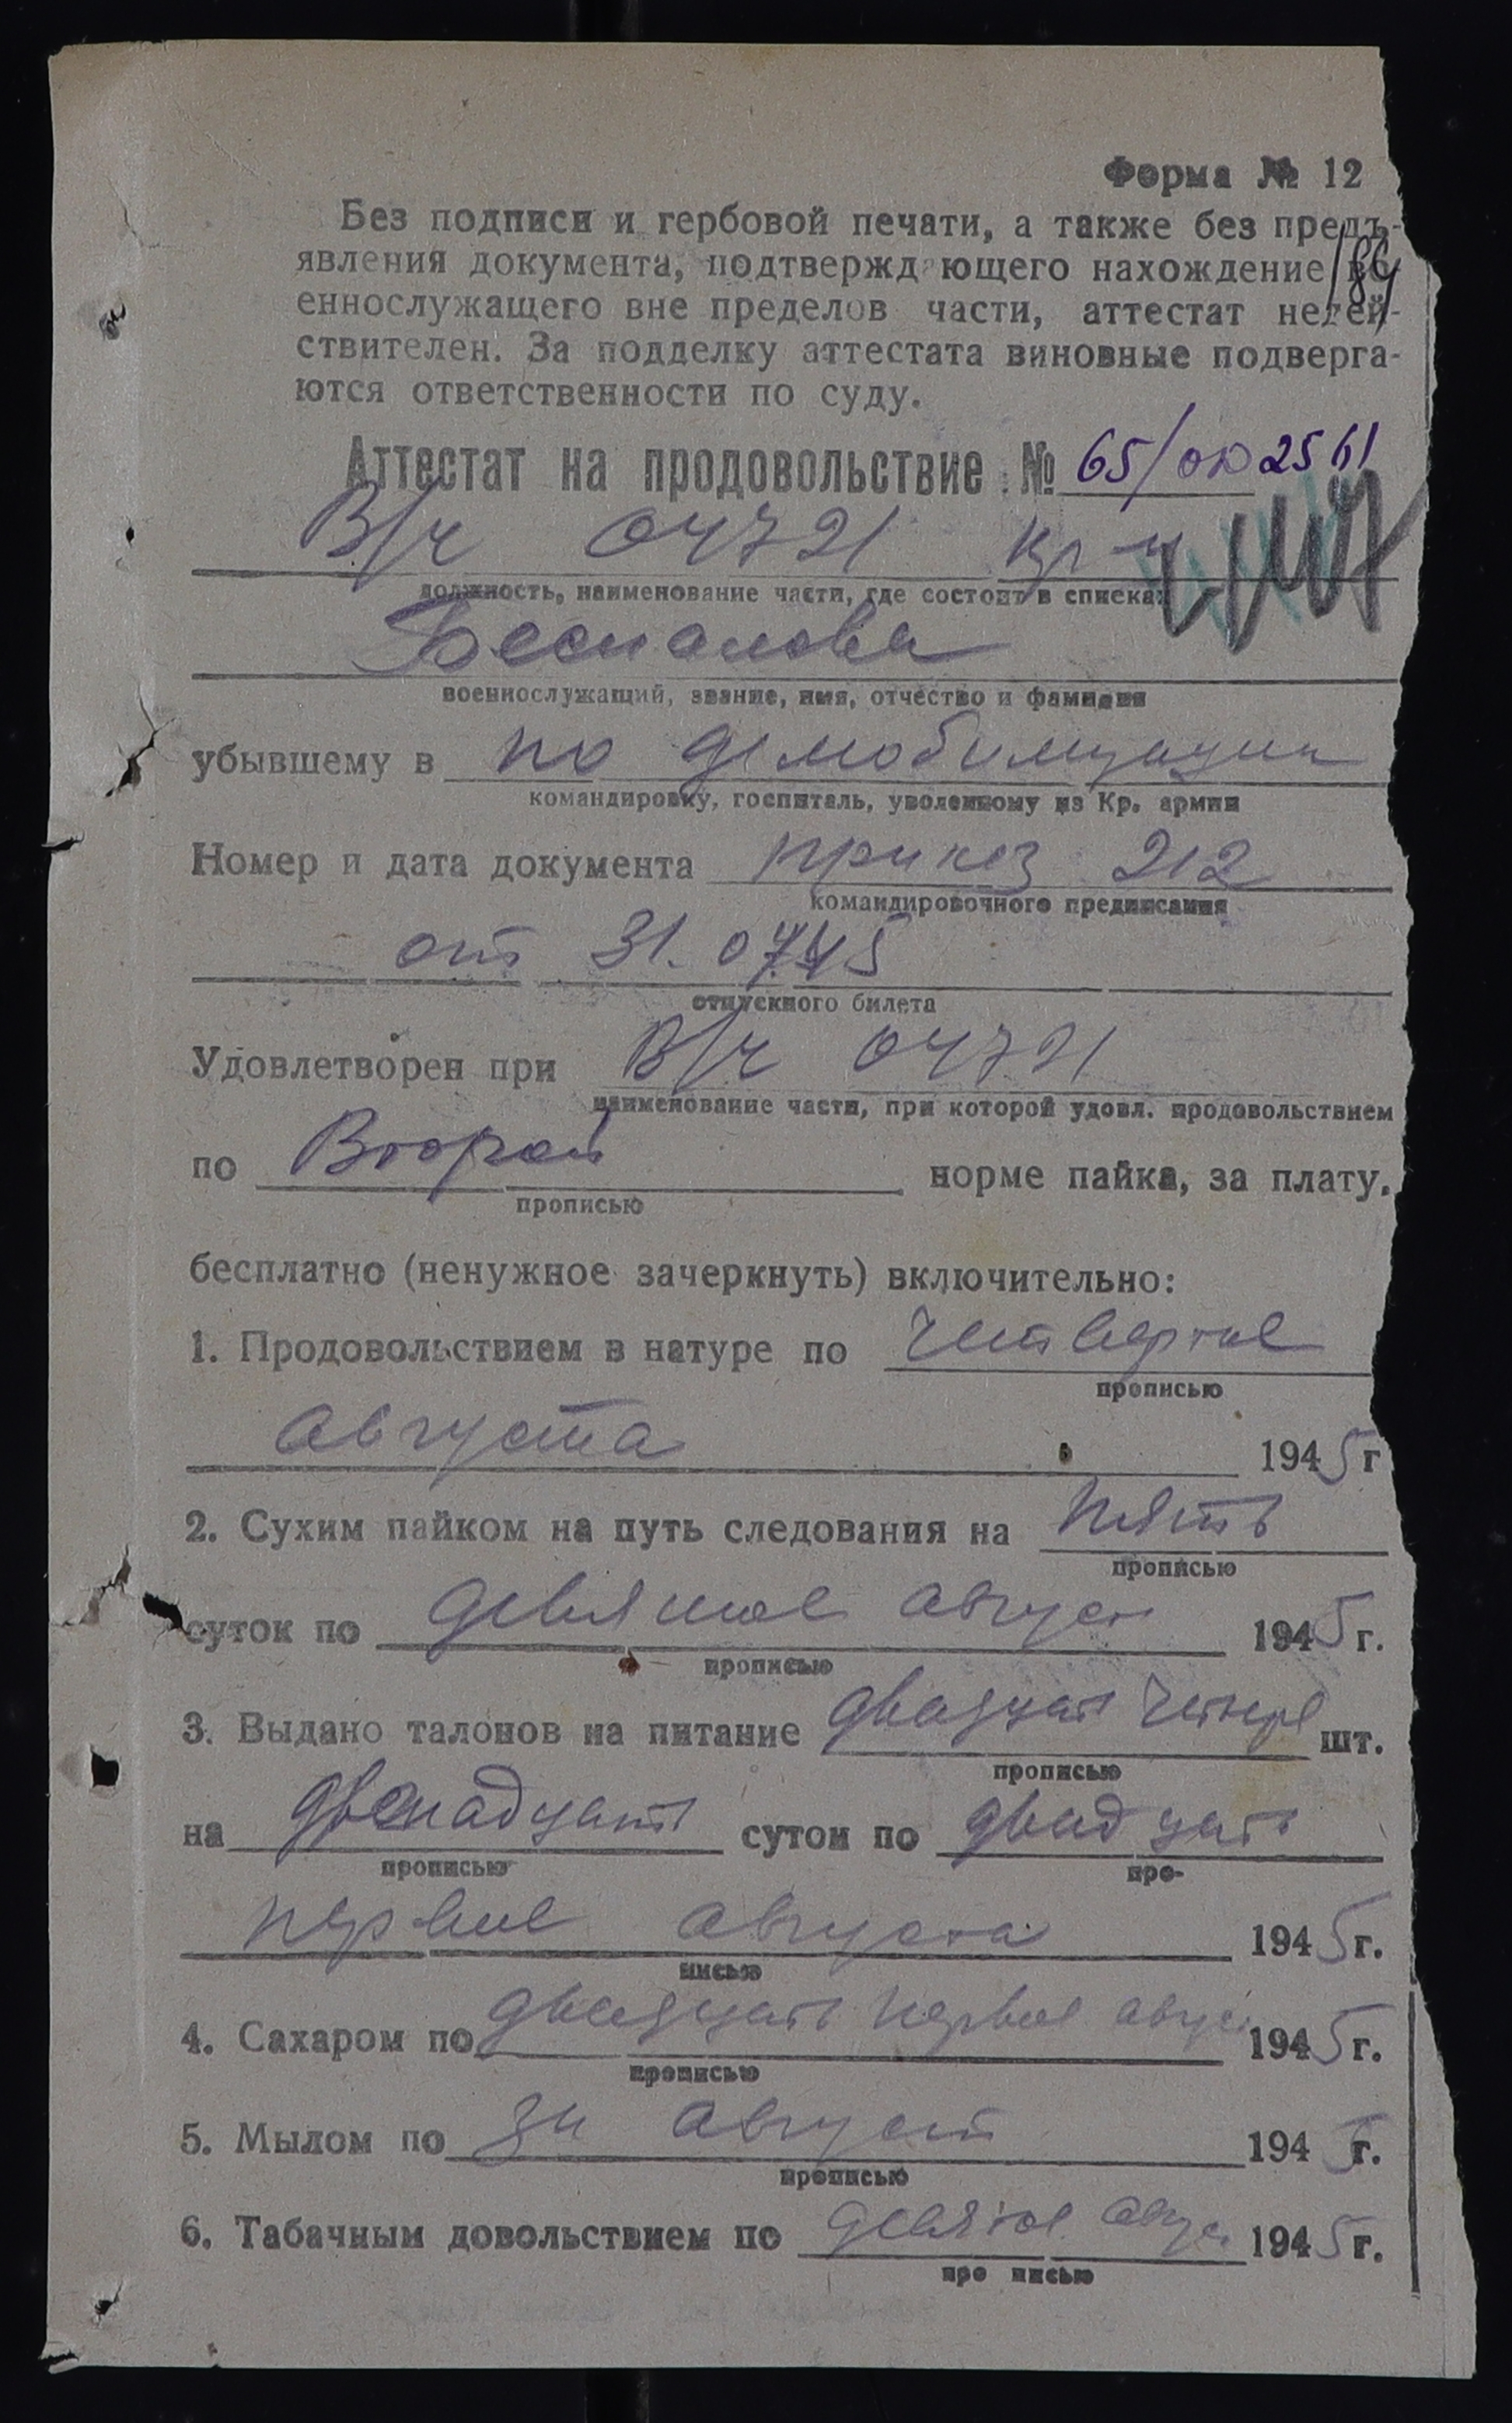 Форма № 12
Без подписи и гербовой печати, а также без предъ-
явления документа, подтверждающего нахождение во-
еннослужащего вне пределов части, аттестат недей-
ствителен. За подделку аттестата виновные подверга-
ются ответственности по суду.
Аттестат на продовольствие № 65/ою 2561
В/ч 04721 кр-ц
должность, наименование части, где состоит в списках
Беспалова
военнослужащий, звание, имя, отчество и фамилия
убывшему в по демобилизации
командировку, госпиталь, уволенному из Кр. армии
Номер и дата документа приказ 212
командировочного предписания
от 31.07.45
отпускного билета
Удовлетворен при В/ч 04721
наименование части, при которой удовл. продовольствием
по Второй норме пайка, за плату.
прописью
бесплатно (ненужное зачеркнуть) включительно:
1. Продовольствием в натуре по четвертое
прописью
августа 1945 г
2. Сухим пайком на путь следования на пять
прописью
суток по девятое август 1945 г.
прописью
3. Выдано талонов на питание двадцать четыре шт.
прописью
на двенадцать суток по двадцать
прописью про-
первое августа 1945 г.
писью
4. Сахаром по двадцать первое август 1945 г.
прописью
5. Мылом по за август 1945 г.
прописью
6. Табачным довольствием по девятое август 1945 г.
про писью